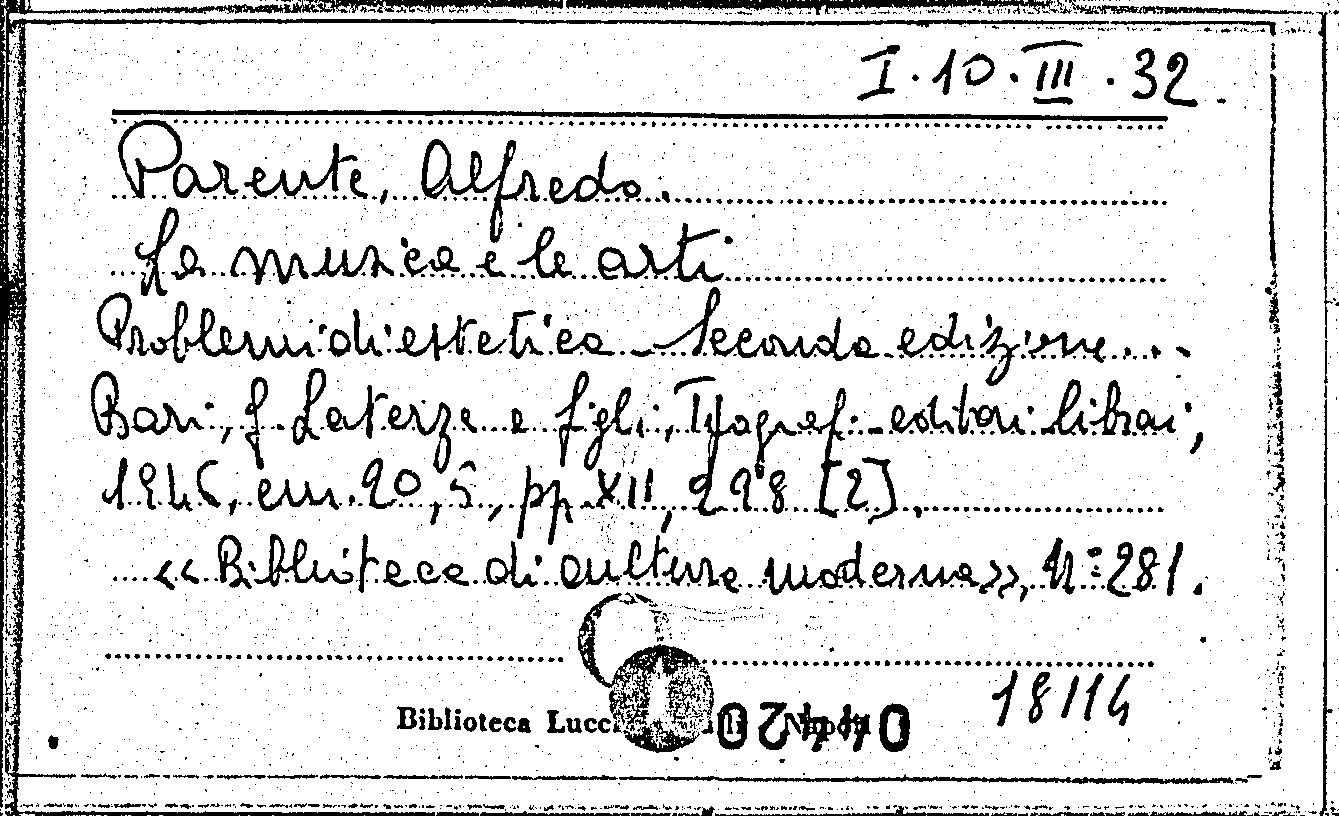 I.10.III.32.
Parente, Alfredo.
La musica e le arti
Problemi di estetica - Seconda edizione...
Bari, G. Laterza e figli, Tipograf. - editori librai,
1946, cm. 20,5, pp. XII, 298 [2].
«Biblioteca di cultura moderna», N° 281.
18114
Biblioteca